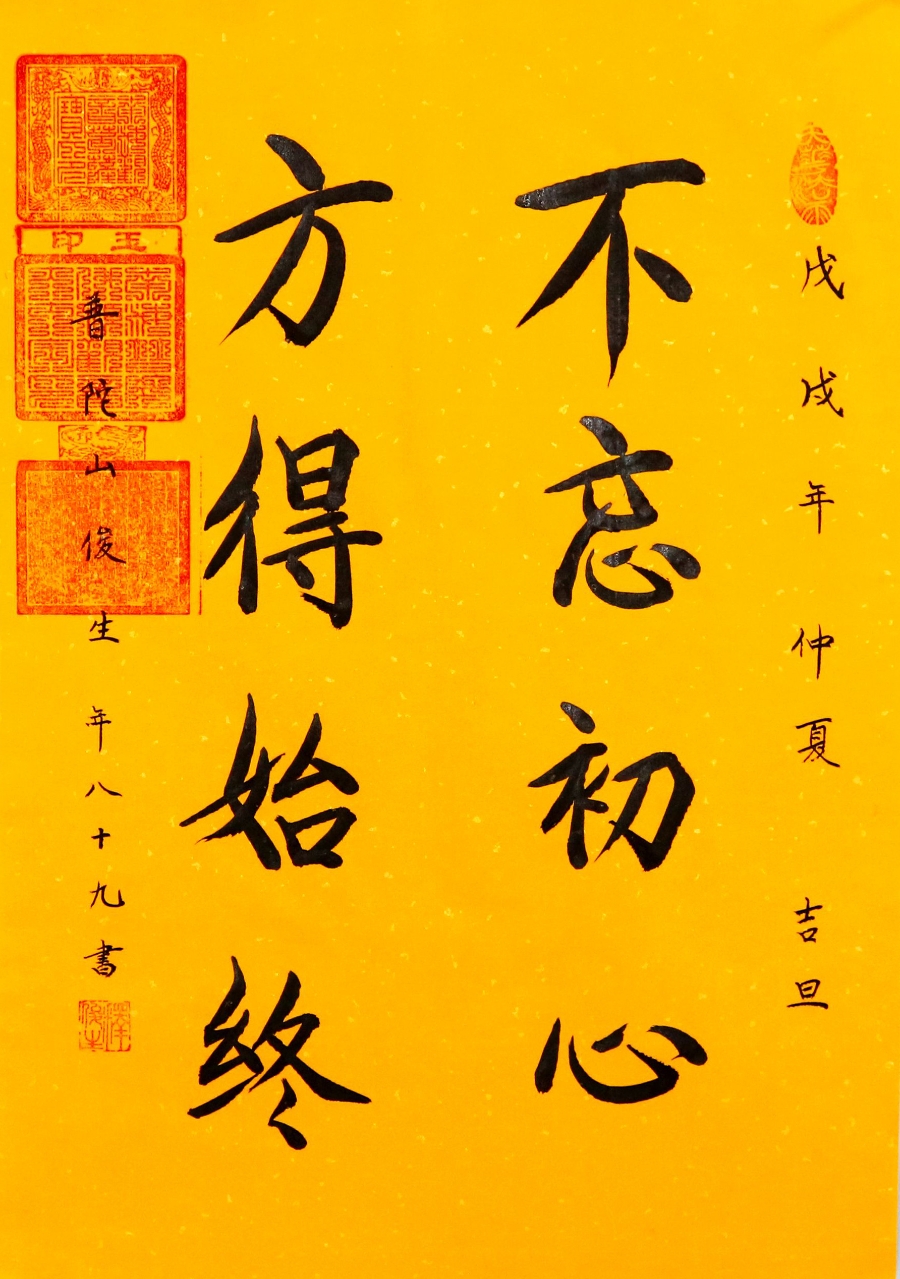 戊戌年仲夏 吉旦
不忘初心
方得始终
玉印
普陀山俊生年八十九書